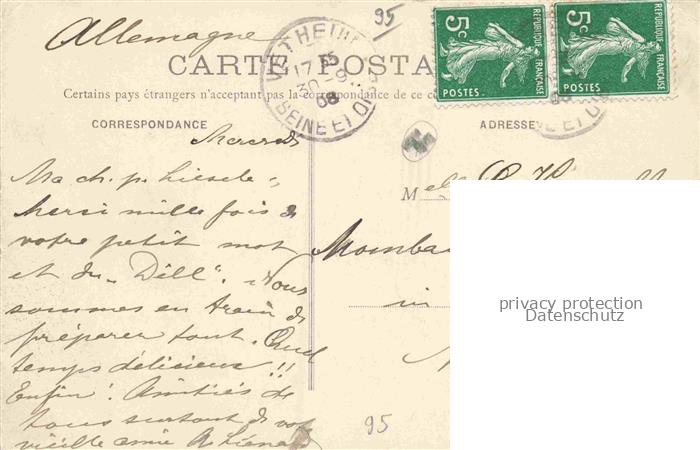 95
Allemagne
CARTE POSTA
Certains pays étrangers n'acceptent pas la correspondance de ce c
CORRESPONDANCE
ADRESSE
5c
REPUBLIQUE FRANÇAISE
POSTES
5c
REPUBLIQUE FRANÇAISE
POSTES
VÉTHEUIL
08
SEINE ET OISE
Mercredi
Ma ch. p. Liesele,
Merci mille fois de
votre petit mot
et du „Dill". Nous
sommes en train de
préparer tout. Quel
temps délicieux!!
Enfin! Amitiés de
tous surtout de votre
vieille amie
Melle
in
95
privacy protection
Datenschutz